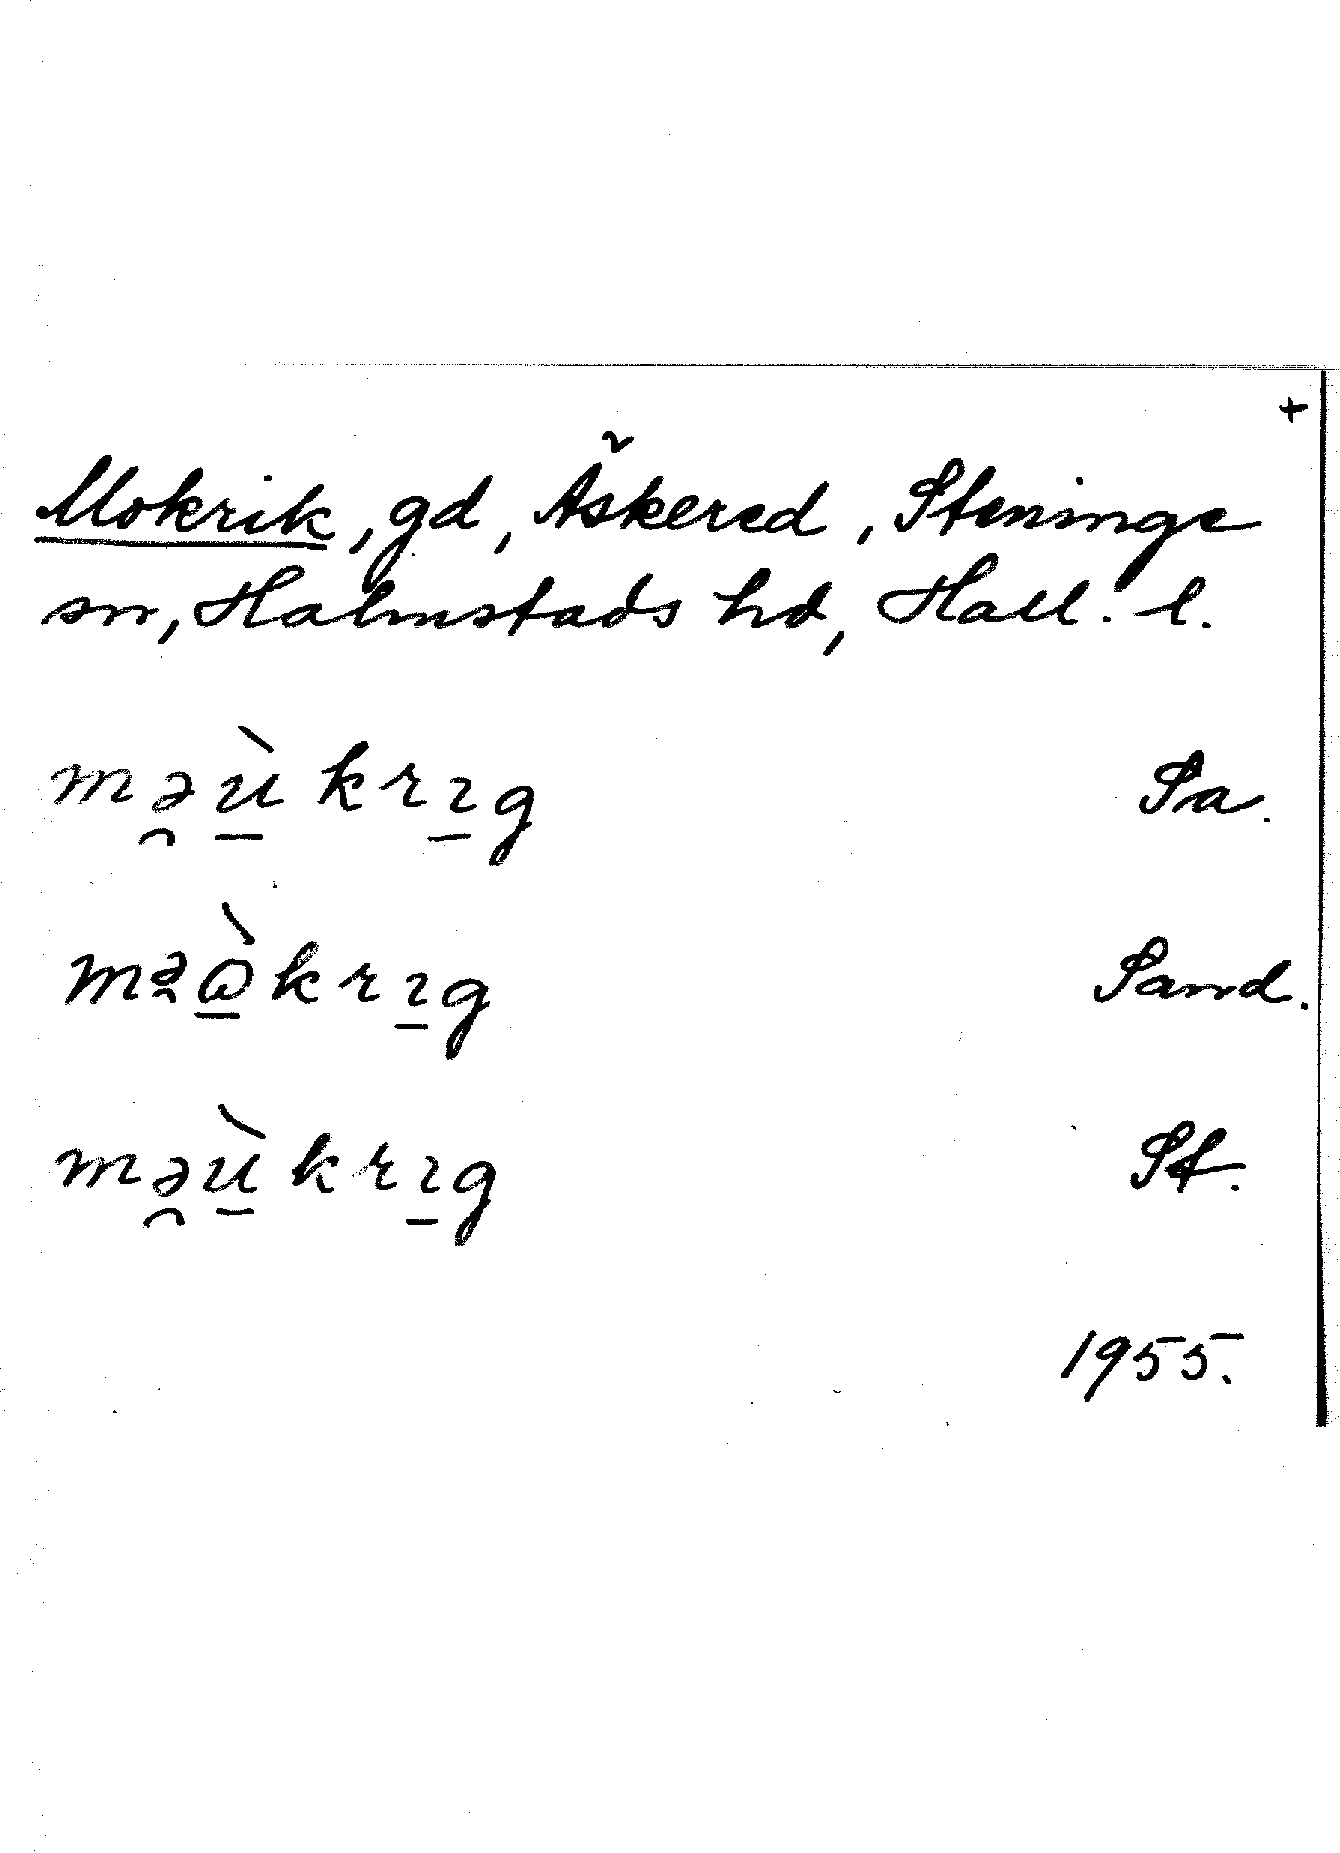 +
Mokrik, gd, Äskered, Steninge
sn, Halmstads hd, Hall. l.
mə̯ù̱krɪ̱g Sa.
mə̯ὼ̱krɪ̱g Sand.
mə̯ù̱krɪ̱g St.
1955.